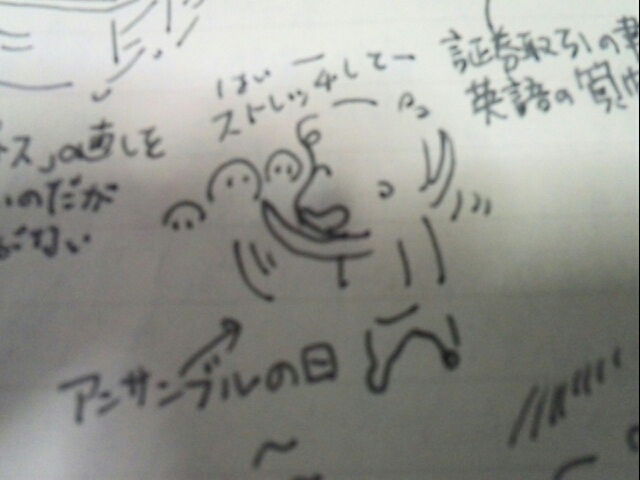 はいー
ストレッチしてー
証券取引の
英語の質
ス」の直しを
いのだが
ない
アンサンブルの日